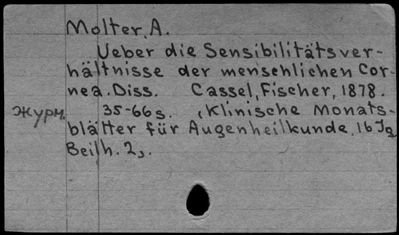 Molter, A.
Ueber die Sensibilitätsver-
hältnisse der menschlichen Cor-
nea. Diss. Cassel, Fischer, 1878.
журн. 35-66 s. (Klinische Monats-
blätter für Augenheilkunde, 16 Jg
Beilh. 2).